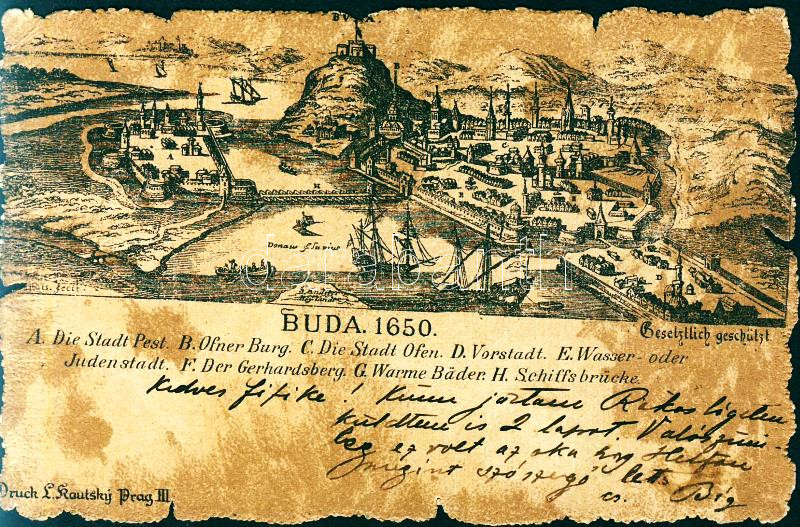 BUDA.
A
H
Donau fluvius
D
BUDA. 1650.
Gesetzlich geschützt.
A. Die Stadt Pest. B. Ofner Burg. C. Die Stadt Ofen. D. Vorstadt. E. Wasser- oder
Judenstadt. F. Der Gerhardsberg. G. Warme Bäder. H. Schiffsbrücke.
Kedves Fifike! Künn jártam Rákos ligeten
küldtem is 2 lapot. Valószínű-
leg ez volt az oka hogy
szószegő lett.
Druck L. Koutský Prag III.
darabanth